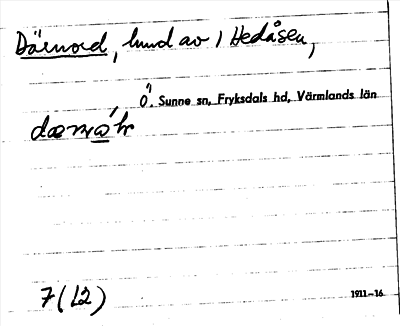 Därnord, lund av 1 Hedåsen,
Ö. Sunne sn, Fryksdals hd, Värmlands län
7 (L2)
1911–16